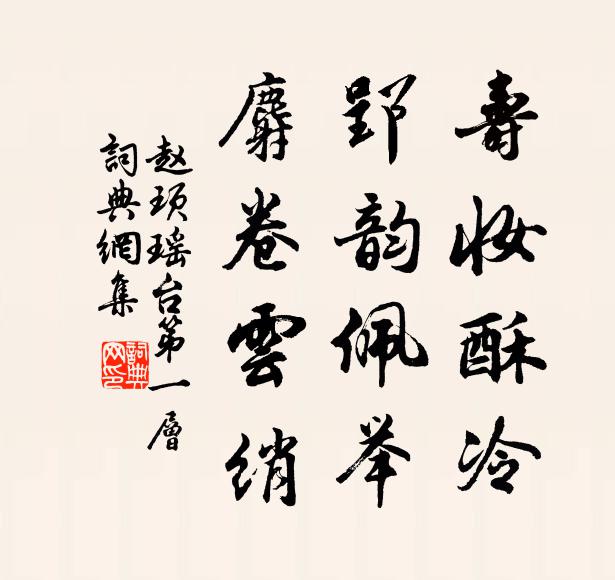 壽妝酥冷
郢韵佩举
麝卷雲绡
赵頊瑶台第一層
詞典網集
詞典
网印